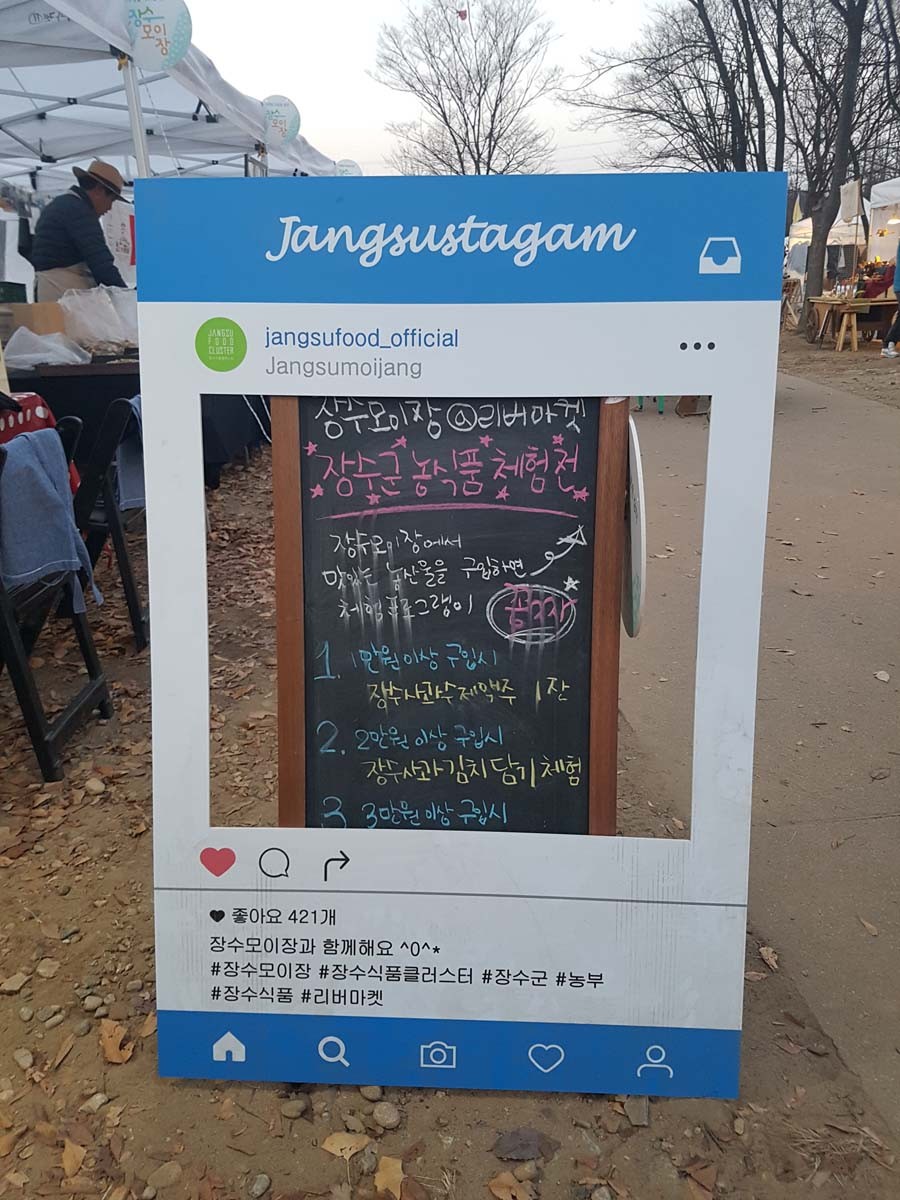 장수
모이장
장수
모이장
Jangsustagam
JANGSU
FOOD
CLUSTER
jangsufood_official
Jangsumoijang
장수모이장 @리버마켓
장수군 농식품 체험전
장수모이장에서
맛있는 농산물을 구입하면
체험프로그램이 공짜
1. 1만원이상 구입시
장수사과수제맥주 1잔
2. 2만원 이상 구입시
장수사과김치담기체험
3 3만원이상 구입시
좋아요 421개
장수모이장과 함께해요 ^0^*
#장수모이장 #장수식품클러스터 #장수군 #농부
#장수식품 #리버마켓